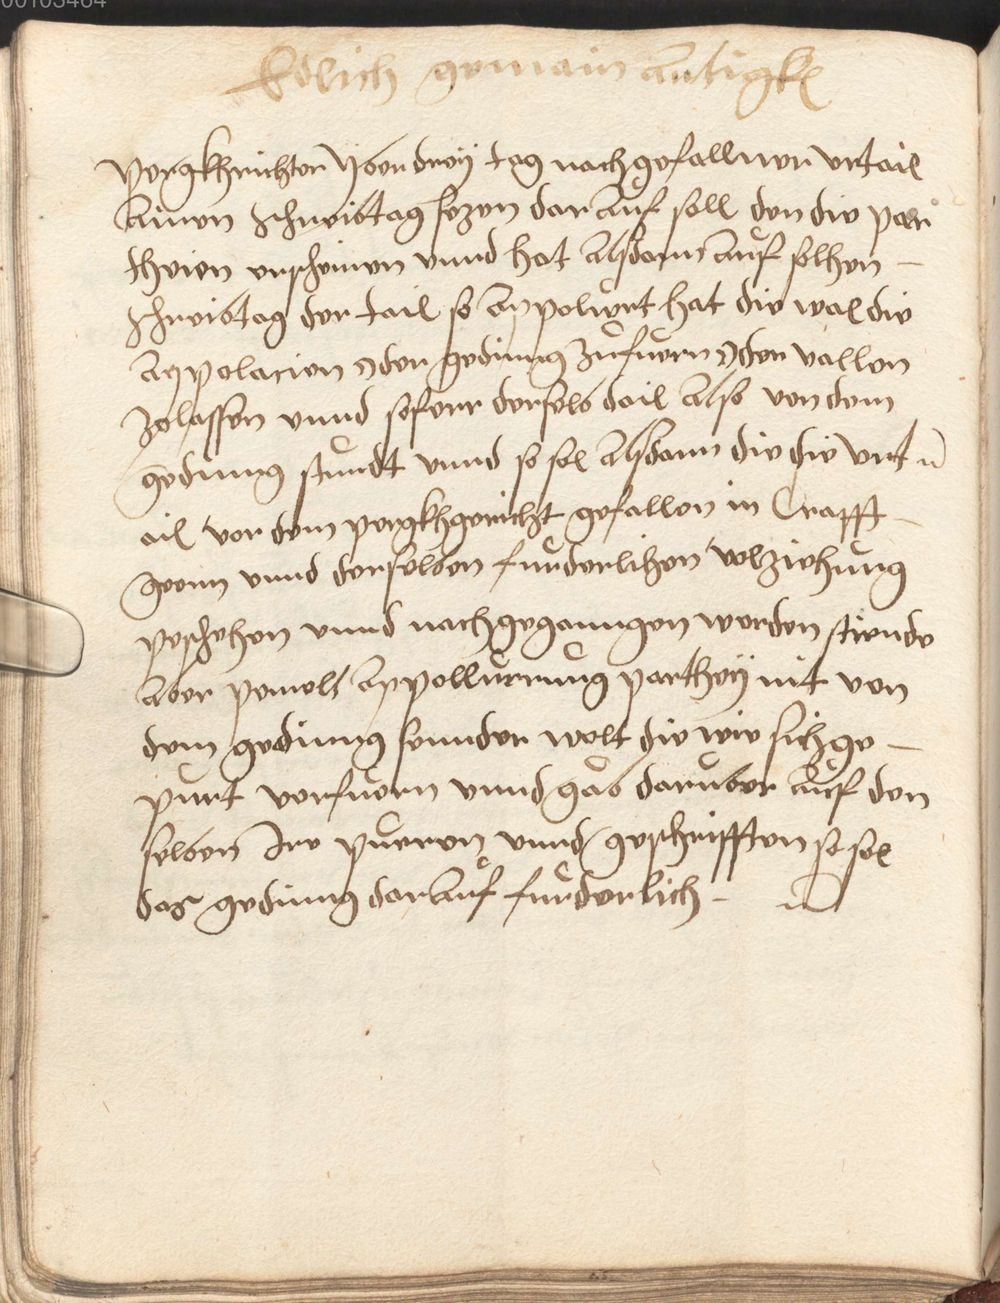 00103464
Etlich gemain Artigkl
Pergkhrichter yber drey tag nach gefallner vrtail
ainen Schreibtag sezen darauf soll den die par
theien erscheinen vnnd hat Alsdann auf solhen
Schreibtag der tail so appeliert hat die wal die
Appelacion oder geding zufuern oder vallen
zelassen vnnd soferr derselb tail Also von dem
geding stundt vnnd so sol Alsdann die die vrt
ail vor dem pergkhgericht gefallen in Crafft
geen vnnd derselben furderlihen volziehung
beschehen vnnd nachgegangen werden stiende
Aber pemelt Appellierung parthey nit von
dem geding sonnder wolt die wie sich ge
purt verfuern vnnd gäb daruber auf den
selben Ire pueren vnnd geschrifften so sol
das geding darauf furderlich